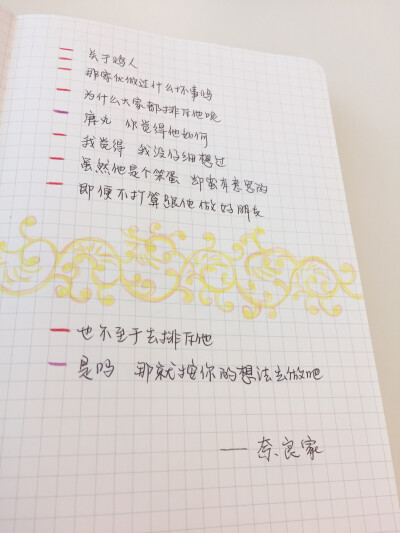 关于鸣人
那家伙做过什么坏事吗
为什么大家都排斥他呢
鹿丸 你觉得他如何
我觉得 我没仔细想过
虽然他是个笨蛋 却蛮有意思的
即便不打算跟他做好朋友
也不至于去排斥他
是吗 那就按你的想法去做吧
—— 奈良家